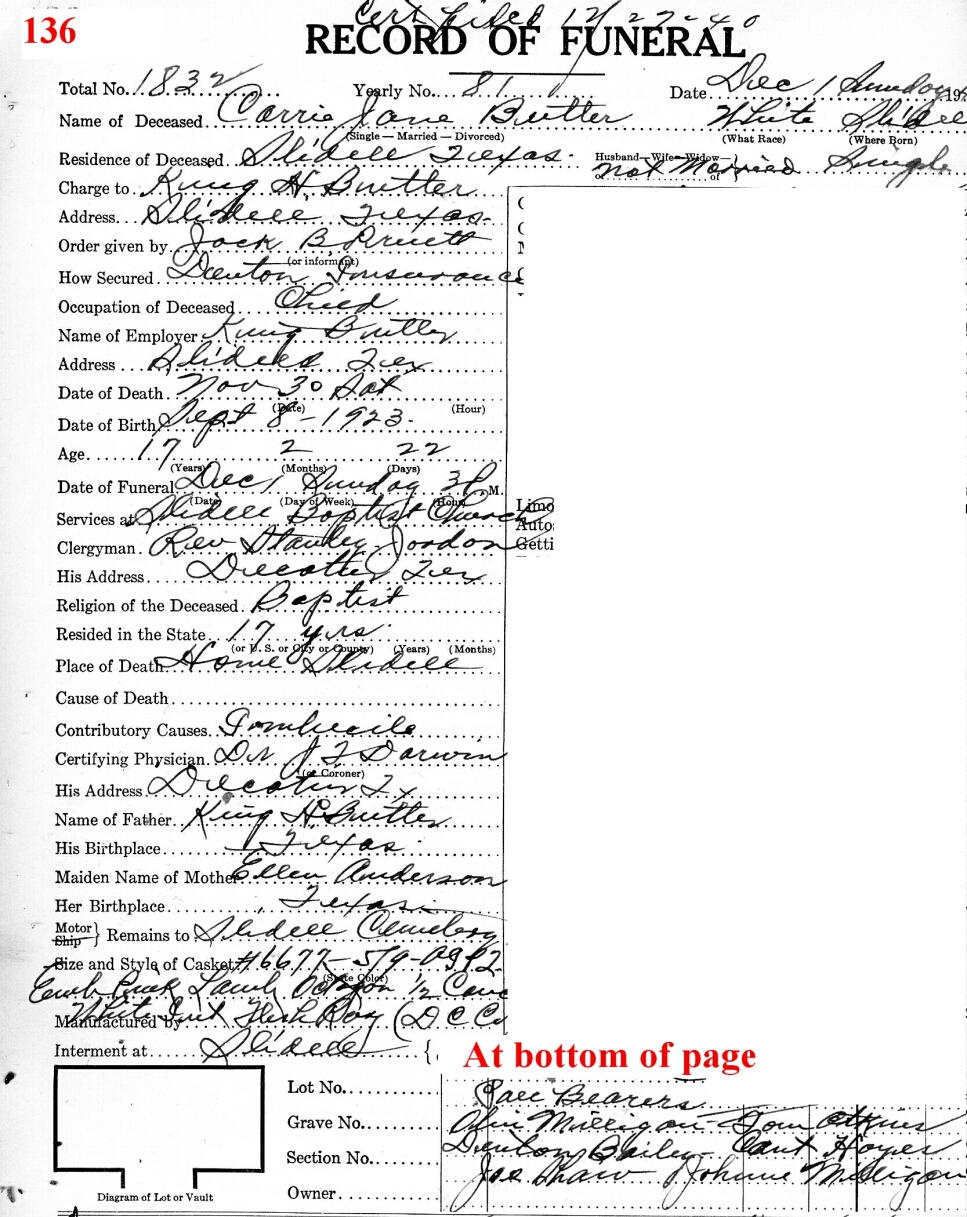 136
Cert filed 12/27-40
RECORD OF FUNERAL
Total No. 1832 Yearly No. 81 Date Dec 1 Sunday 19
Name of Deceased Carrie Jane Butler White Slidell
(Single — Married — Divorced) (What Race) (Where Born)
Residence of Deceased Slidell Texas. Husband—Wife—Widow— or of } not Married Single
Charge to King H Butler
Address Slidell Texas
Order given by Jack B Pruett
(or informant)
How Secured Denton Insurance
Occupation of Deceased Child
Name of Employer King Butler
Address Slidell Tex
Date of Death Nov 30 Sat
(Date) (Hour)
Date of Birth Sept 8 - 1923.
Age 17 2 22
(Years) (Months) (Days)
Date of Funeral Dec 1 Sunday 3 P.M.
(Date) (Day of Week) (Hour)
Services at Slidell Baptist Church
Limo
Auto
Clergyman Rev Stanley Jordon
Getti
His Address Decatur Tex
Religion of the Deceased Baptist
Resided in the State 17 yrs
(or U. S. or City or County) (Years) (Months)
Place of Death Home Slidell
Cause of Death
Contributory Causes Imbecile
Certifying Physician Dr J F Darwin
(or Coroner)
His Address Decatur Tx
Name of Father King H Butler
His Birthplace Texas
Maiden Name of Mother Ellen Anderson
Her Birthplace Texas
Motor Ship } Remains to Slidell Cemetery
Size and Style of Casket #6677 - 5/9
(State Color)
Octagon 1/2
Manufactured by White (D C Co
Interment at Slidell {
At bottom of page
Lot No. Pall Bearers
Grave No. Milligan - Tom
Denton Bailey
Section No. Joe Shaw Johnie Milligan
Owner
Diagram of Lot or Vault